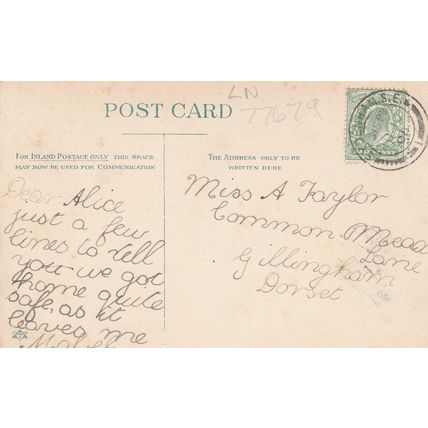 LN
77679
POST CARD
FOR INLAND POSTAGE ONLY THIS SPACE
MAY NOW BE USED FOR COMMUNICATION
THE ADDRESS ONLY TO BE
WRITTEN HERE
Dear Alice
just a few
lines to tell
you we got
home quite
safe as it
leaves me
Miss A Taylor
Common Mead
Lane
Gillingham
Dorset